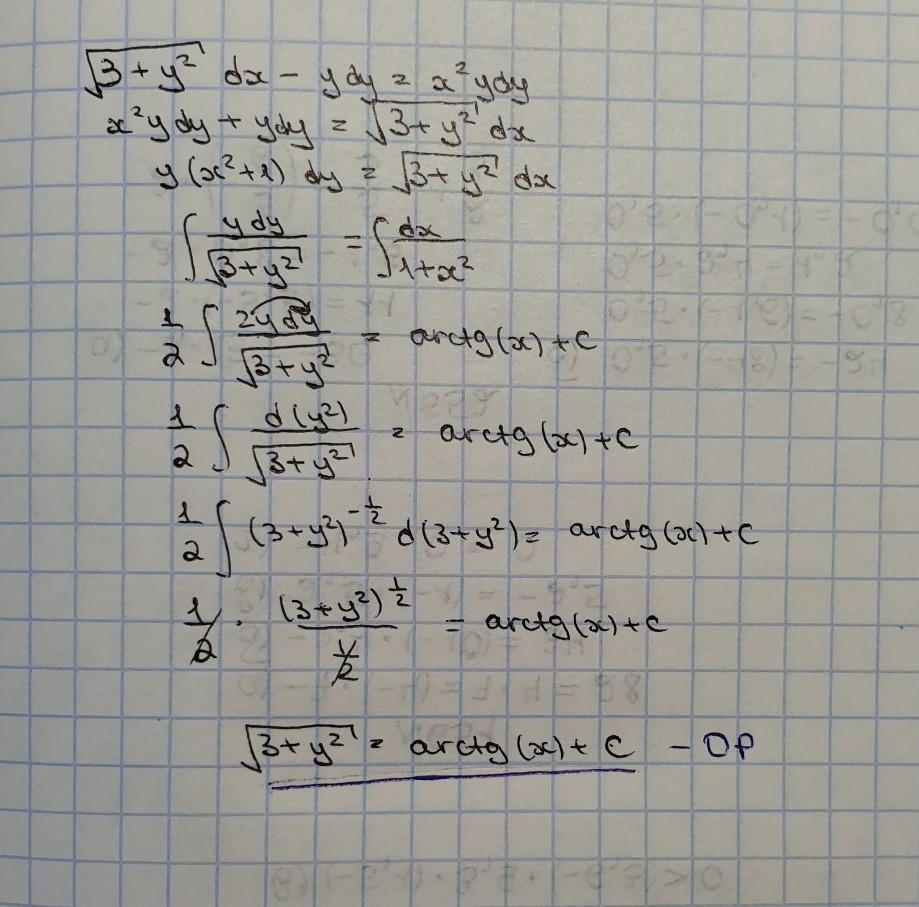 √(3+y²) dx − ydy = x²ydy
x²ydy + ydy = √(3+y²) dx
y(x²+1) dy = √(3+y²) dx
∫ ydy/√(3+y²) = ∫ dx/(1+x²)
1/2 ∫ 2ydy/√(3+y²) = arctg(x)+C
1/2 ∫ d(y²)/√(3+y²) = arctg(x)+C
1/2 ∫ (3+y²)^(-1/2) d(3+y²) = arctg(x)+C
1/2 · (3+y²)^(1/2)/(1/2) = arctg(x)+C
√(3+y²) = arctg(x)+C – ОР